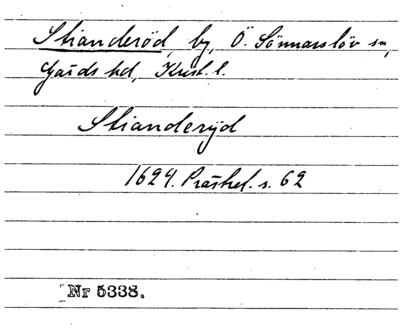 Stianderöd, by, Ö. Sönnarslöv sn,
Gärds hd, Krist. l.
Stianderyd
1624. Prästrel. s. 62
Nr 5338.